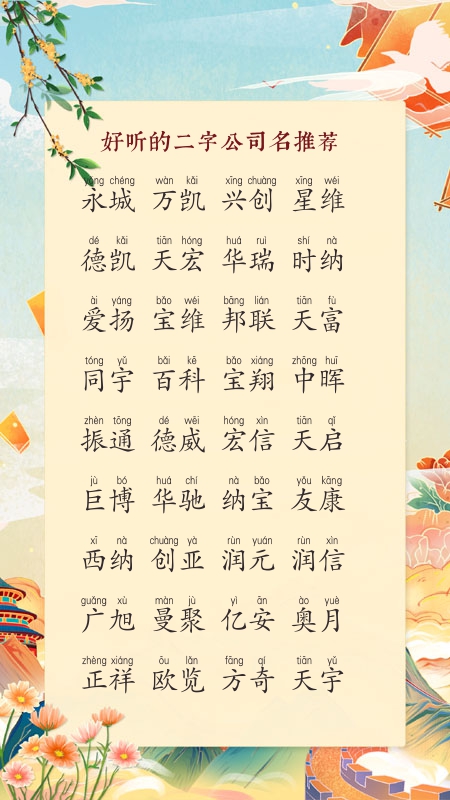 好听的二字公司名推荐
yǒng chéng wàn kǎi xīng chuàng xīng wéi
永城 万凯 兴创 星维
dé kǎi tiān hóng huá ruì shí nà
德凯 天宏 华瑞 时纳
ài yáng bǎo wéi bāng lián tiān fù
爱扬 宝维 邦联 天富
tóng yǔ bǎi kē bǎo xiáng zhōng huī
同宇 百科 宝翔 中晖
zhèn tōng dé wēi hóng xìn tiān qǐ
振通 德威 宏信 天启
jù bó huá chí nà bǎo yǒu kāng
巨博 华驰 纳宝 友康
xī nà chuàng yà rùn yuán rùn xìn
西纳 创亚 润元 润信
guǎng xù màn jù yì ān ào yuè
广旭 曼聚 亿安 奥月
zhèng xiáng ōu lǎn fāng qí tiān yǔ
正祥 欧览 方奇 天宇